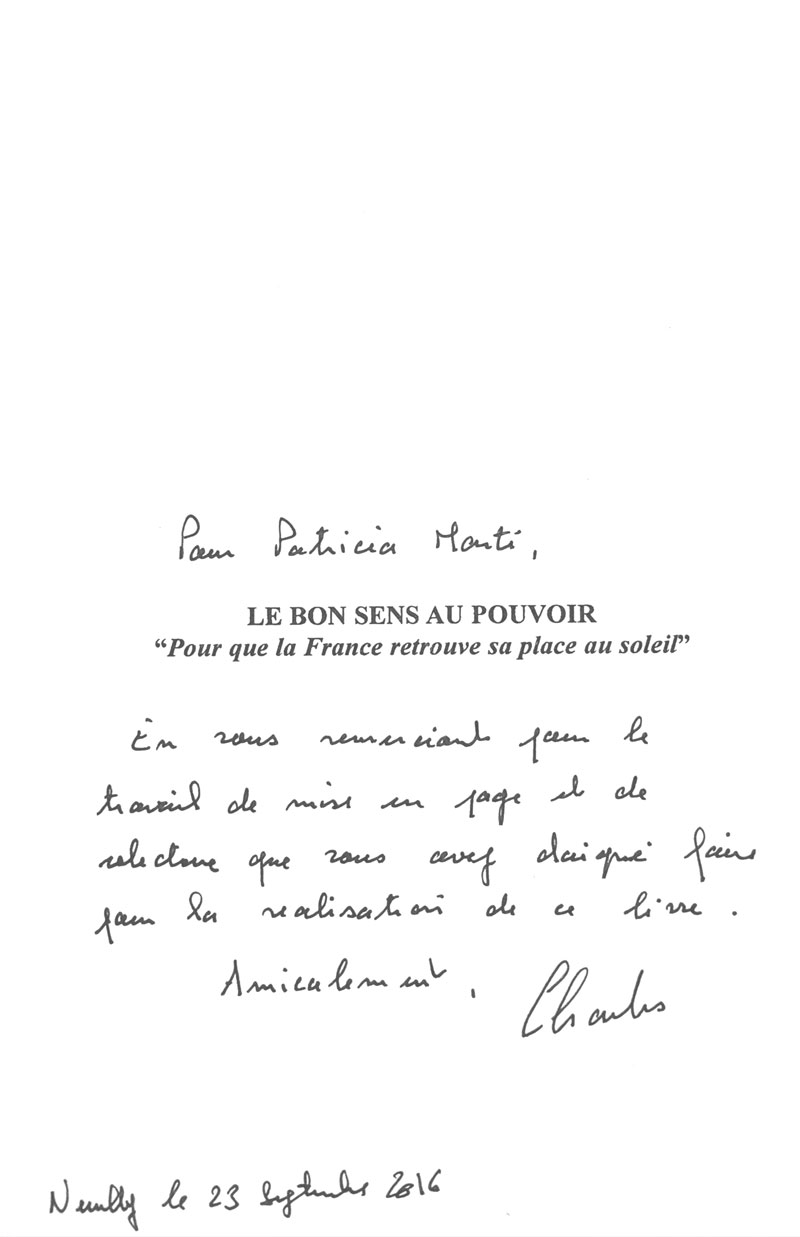 Pour Patricia Monti,
LE BON SENS AU POUVOIR
“Pour que la France retrouve sa place au soleil”
En vous remerciant pour le
travail de mise en page et de
relecture que vous avez daigné faire
pour la réalisation de ce livre.
Amicalement,
Charles
Neuilly le 23 Septembre 2016